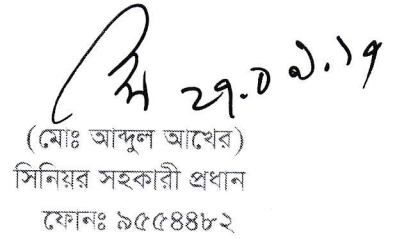 (মোঃ আব্দুল আখের)
সিনিয়র সহকারী প্রধান
ফোনঃ ৯৫৫৪৪৮২